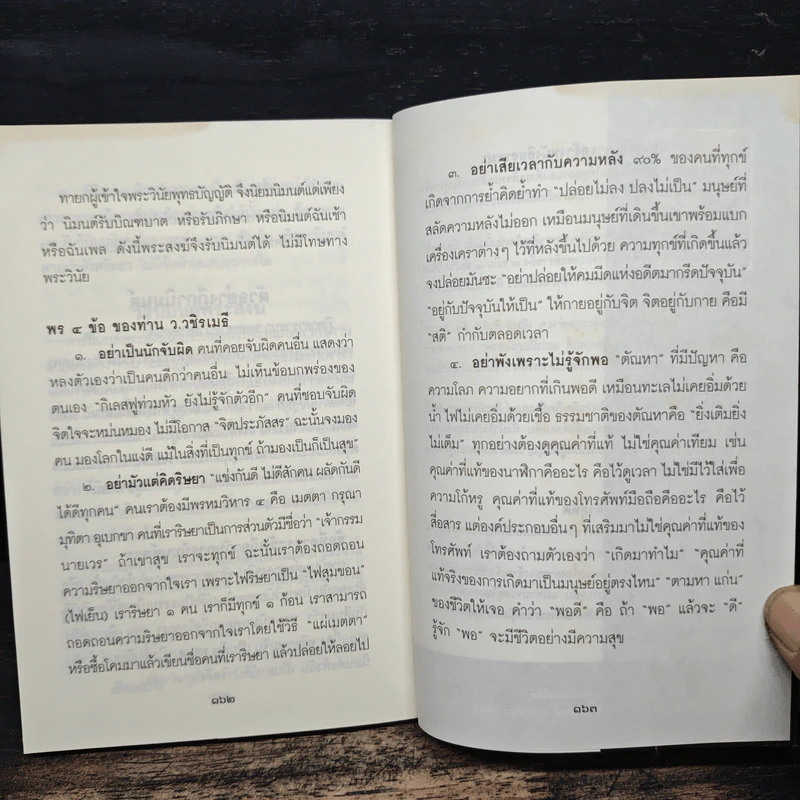 ทายกผู้เข้าใจพระวินัยพุทธบัญญัติ จึงนิยมนิมนต์แต่เพียง
ว่า นิมนต์รับบิณฑบาต หรือรับภิกษา หรือนิมนต์ฉันเช้า
หรือฉันเพล ดังนี้พระสงฆ์จึงรับนิมนต์ได้ ไม่มีโทษทาง
พระวินัย
พร ๔ ข้อ ของท่าน ว.วชิรเมธี
๑. อย่าเป็นนักจับผิด คนที่คอยจับผิดคนอื่น แสดงว่า
หลงตัวเองว่าเป็นคนดีกว่าคนอื่น ไม่เห็นข้อบกพร่องของ
ตนเอง “กิเลสฟูท่วมหัว ยังไม่รู้จักตัวอีก” คนที่ชอบจับผิด
จิตใจจะหม่นหมอง ไม่มีโอกาส “จิตประภัสสร” ฉะนั้นจงมอง
คน มองโลกในแง่ดี แม้ในสิ่งที่เป็นทุกข์ ถ้ามองเป็นก็เป็นสุข”
๒. อย่ามัวแต่คิดริษยา “แข่งกันดี ไม่ดีสักคน ผลัดกันดี
ได้ดีทุกคน” คนเราต้องมีพรหมวิหาร ๔ คือ เมตตา กรุณา
มุทิตา อุเบกขา คนที่เราริษยาเป็นการส่วนตัวมีชื่อว่า “เจ้ากรรม
นายเวร” ถ้าเขาสุข เราจะทุกข์ ฉะนั้นเราต้องถอดถอน
ความริษยาออกจากใจเรา เพราะไฟริษยาเป็น “ไฟสุมขอน”
(ไฟเย็น) เราริษยา ๑ คน เราก็มีทุกข์ ๑ ก้อน เราสามารถ
ถอดถอนความริษยาออกจากใจเราโดยใช้วิธี “แผ่เมตตา”
หรือซื้อโคมมาแล้วเขียนชื่อคนที่เราริษยา แล้วปล่อยให้ลอยไป
๑๖๒
๓. อย่าเสียเวลากับความหลัง ๙๐% ของคนที่ทุกข์
เกิดจากการย้ำคิดย้ำทำ “ปล่อยไม่ลง ปลงไม่เป็น” มนุษย์ที่
สลัดความหลังไม่ออก เหมือนมนุษย์ที่เดินขึ้นเขาพร้อมแบก
เครื่องเคราต่างๆ ไว้ที่หลังขึ้นไปด้วย ความทุกข์ที่เกิดขึ้นแล้ว
จงปล่อยมันซะ “อย่าปล่อยให้คมมีดแห่งอดีตมากรีดปัจจุบัน”
“อยู่กับปัจจุบันให้เป็น” ให้กายอยู่กับจิต จิตอยู่กับกาย คือมี
“สติ” กำกับตลอดเวลา
๔. อย่าพังเพราะไม่รู้จักพอ “ตัณหา” ที่มีปัญหา คือ
ความโลภ ความอยากที่เกินพอดี เหมือนทะเลไม่เคยอิ่มด้วย
น้ำ ไฟไม่เคยอิ่มด้วยเชื้อ ธรรมชาติของตัณหาคือ “ยิ่งเติมยิ่ง
ไม่เต็ม” ทุกอย่างต้องดูคุณค่าที่แท้ ไม่ใช่คุณค่าเทียม เช่น
คุณค่าที่แท้ของนาฬิกาคืออะไร คือไว้ดูเวลา ไม่ใช่มีไว้ใส่เพื่อ
ความโก้หรู คุณค่าที่แท้ของโทรศัพท์มือถือคืออะไร คือไว้
สื่อสาร แต่องค์ประกอบอื่นๆ ที่เสริมมาไม่ใช่คุณค่าที่แท้ของ
โทรศัพท์ เราต้องถามตัวเองว่า “เกิดมาทำไม” “คุณค่าที่
แท้จริงของการเกิดมาเป็นมนุษย์อยู่ตรงไหน” “ตามหา แก่น”
ของชีวิตให้เจอ คำว่า “พอดี” คือ ถ้า “พอ” แล้วจะ “ดี”
รู้จัก “พอ” จะมีชีวิตอย่างมีความสุข
๑๖๓